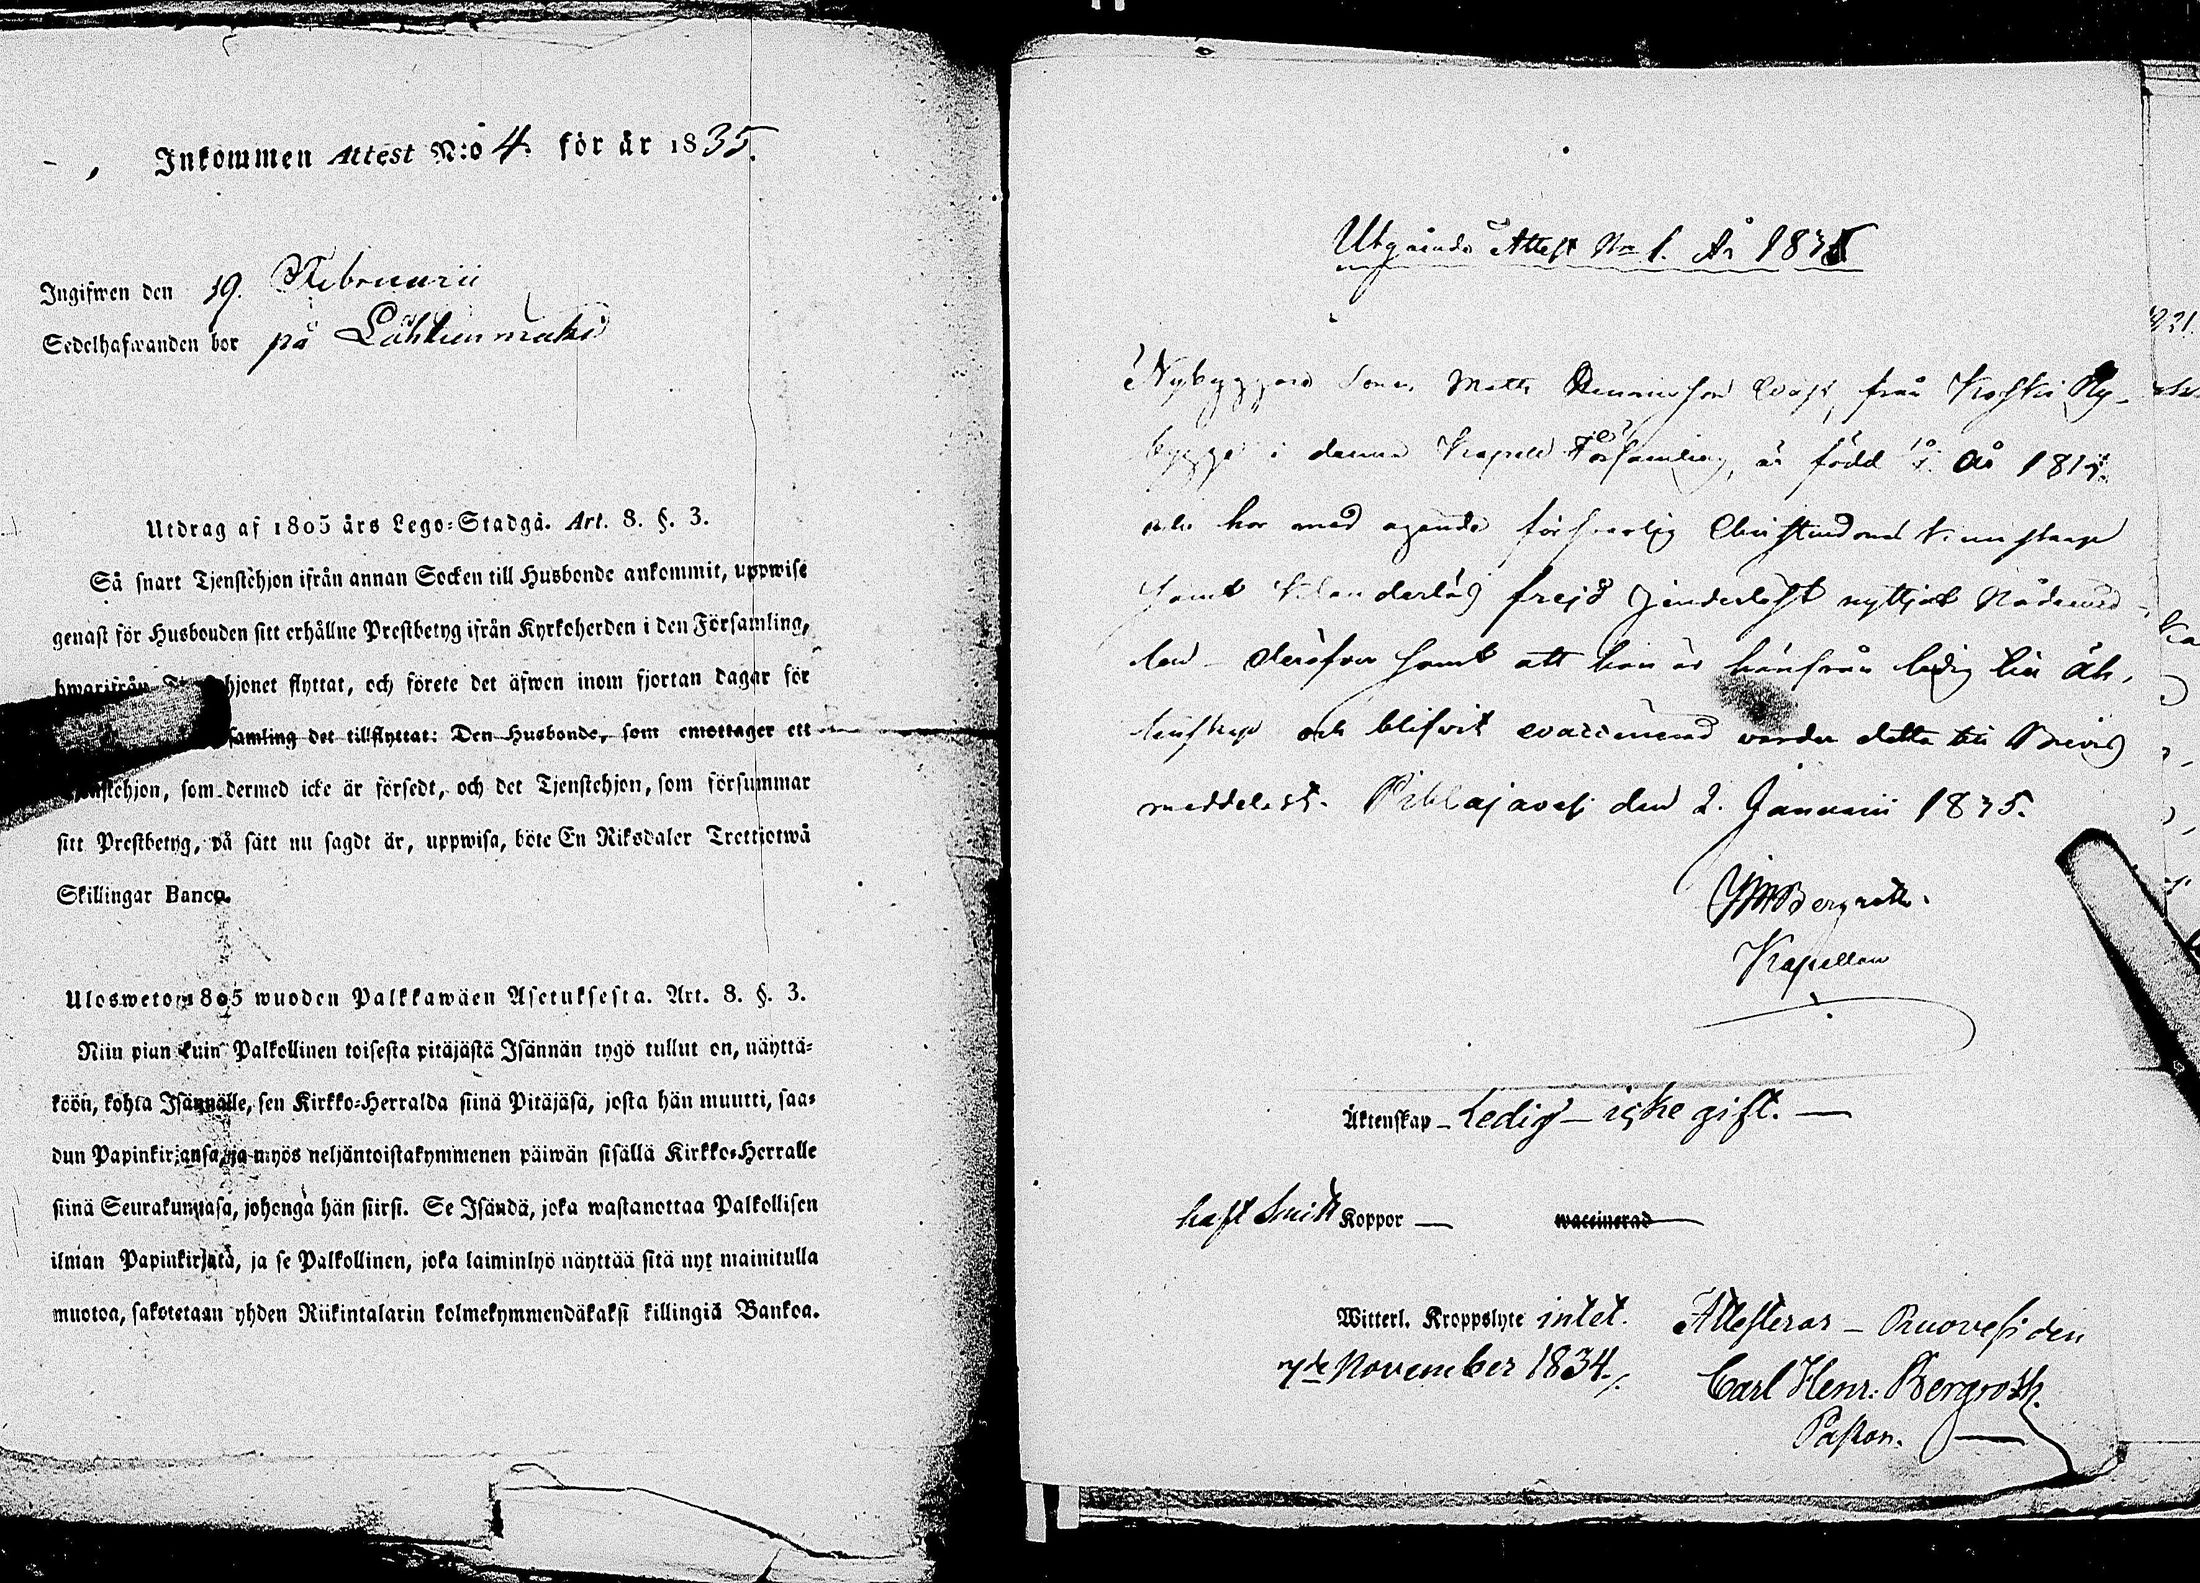 Inkommen Attest N:o 4. för år 1835.
Ingifwen den 19. Februarii
Sedelhafwanden bor på
Utdrag af 1805 års Lego-Stadgå. Art. 8. §. 3.
Så snart Tjenstehjon ifrån annan Socken till Husbonde ankommit, uppwise
genast för Husbonden sitt erhållne Prestbetyg ifrån Kyrkoherden i den Församling,
hwarifrån flyttat, och förete det äfwen inom fjortan dagar för
samling det tillflyttat: Den Husbonde, som emottager ett
Tjenstehjon, som dermed icke är försedt, och det Tjenstehjon, som försummar
sitt Prestbetyg, på sätt nu sagdt är, uppwisa, böte En Riksdaler Trettiotwå
Skillingar Banco.
Ulosweto 1805 wuoden Palkkawäen Asetuksesta. Art. 8. §. 3.
Niin pian kuin Palkollinen toisesta pitäjästä Isännän tygö tullut on, näyttä-
köön, kohta Isännälle, sen Kirkko-Herralda siinä Pitäjäsä, josta hän muutti, saa-
dun Papinkirjansa, ja myös neljäntoistakymmenen päiwän sisällä Kirkko-Herralle
siinä Seurakunnasa, johonga hän siirsi. Se Isändä, joka wastanottaa Palkollisen
ilman Papinkirjatä, ja se Palkollinen, joka laiminlyö näyttää sitä nyt mainitulla
muotoa, sakotetaan yhden Riikintalarin kolmekymmendäkaksi killingiä Bankoa.
Utgående Attest No 1. År 1835
Nybyggare Sonen Matts från Koski Ny-
bygge i denna Kapell Församling, är född år
och har med ägande försvarlig Christendoms kunskap
samt klanderlös frejd hinderlöst nyttjat Nådemed-
len - derofvan samt att han är härifrån ledig till äk-
tenskap och blifvit vaccinerad varder detta till Bevis
meddelat. Pihlajavesi den 2. Januarii 1835.
JMBergroth.
Kapellan
Äktenskap - Ledig - icke gift. —
haft Smitt Koppor — waccinerad
Witterl. Kroppslyte intet. Attesteras - Ruovesi den
7de November 1834. Carl Henr. Bergroth.
Pastor.